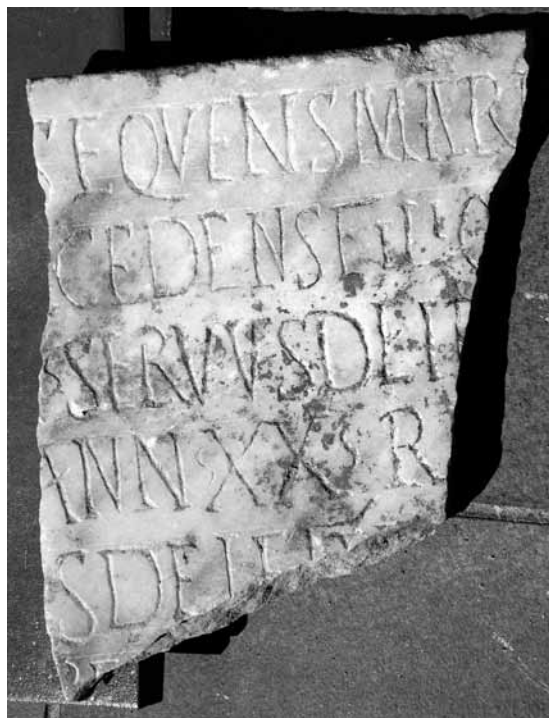 SEQVENSMAR
CEDENSE
SSERVVSDEI
ANNSXXSR
SDEI